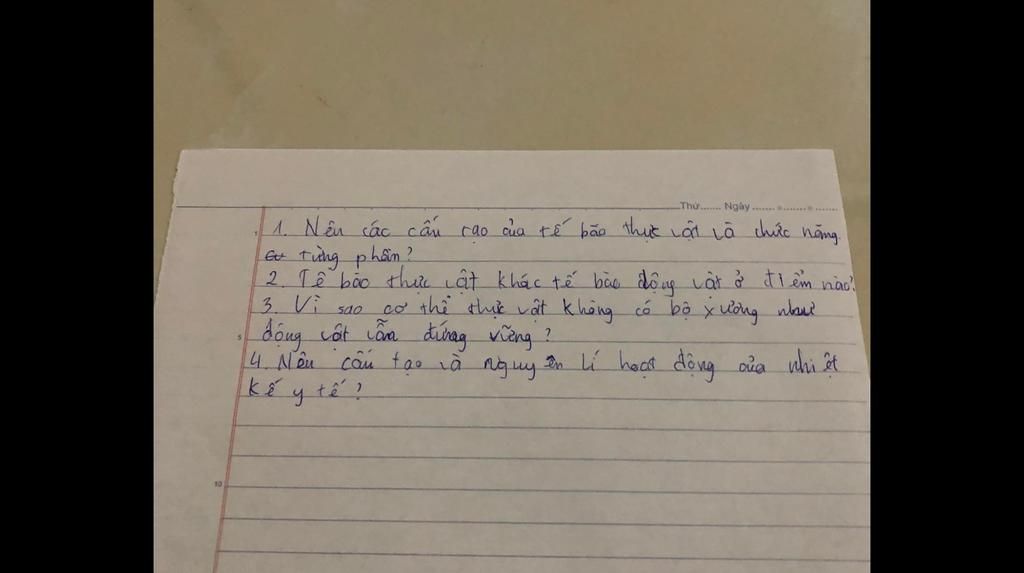 Thứ...... Ngày .......................
1. Nêu các cấu tạo của tế bào thực vật và chức năng
từng phần?
2. Tế bào thực vật khác tế bào động vật ở điểm nào?
3. Vì sao cơ thể thực vật không có bộ xương như
5 động vật vẫn đứng vững?
4. Nêu cấu tạo và nguyên lí hoạt động của nhiệt
kế y tế?
10